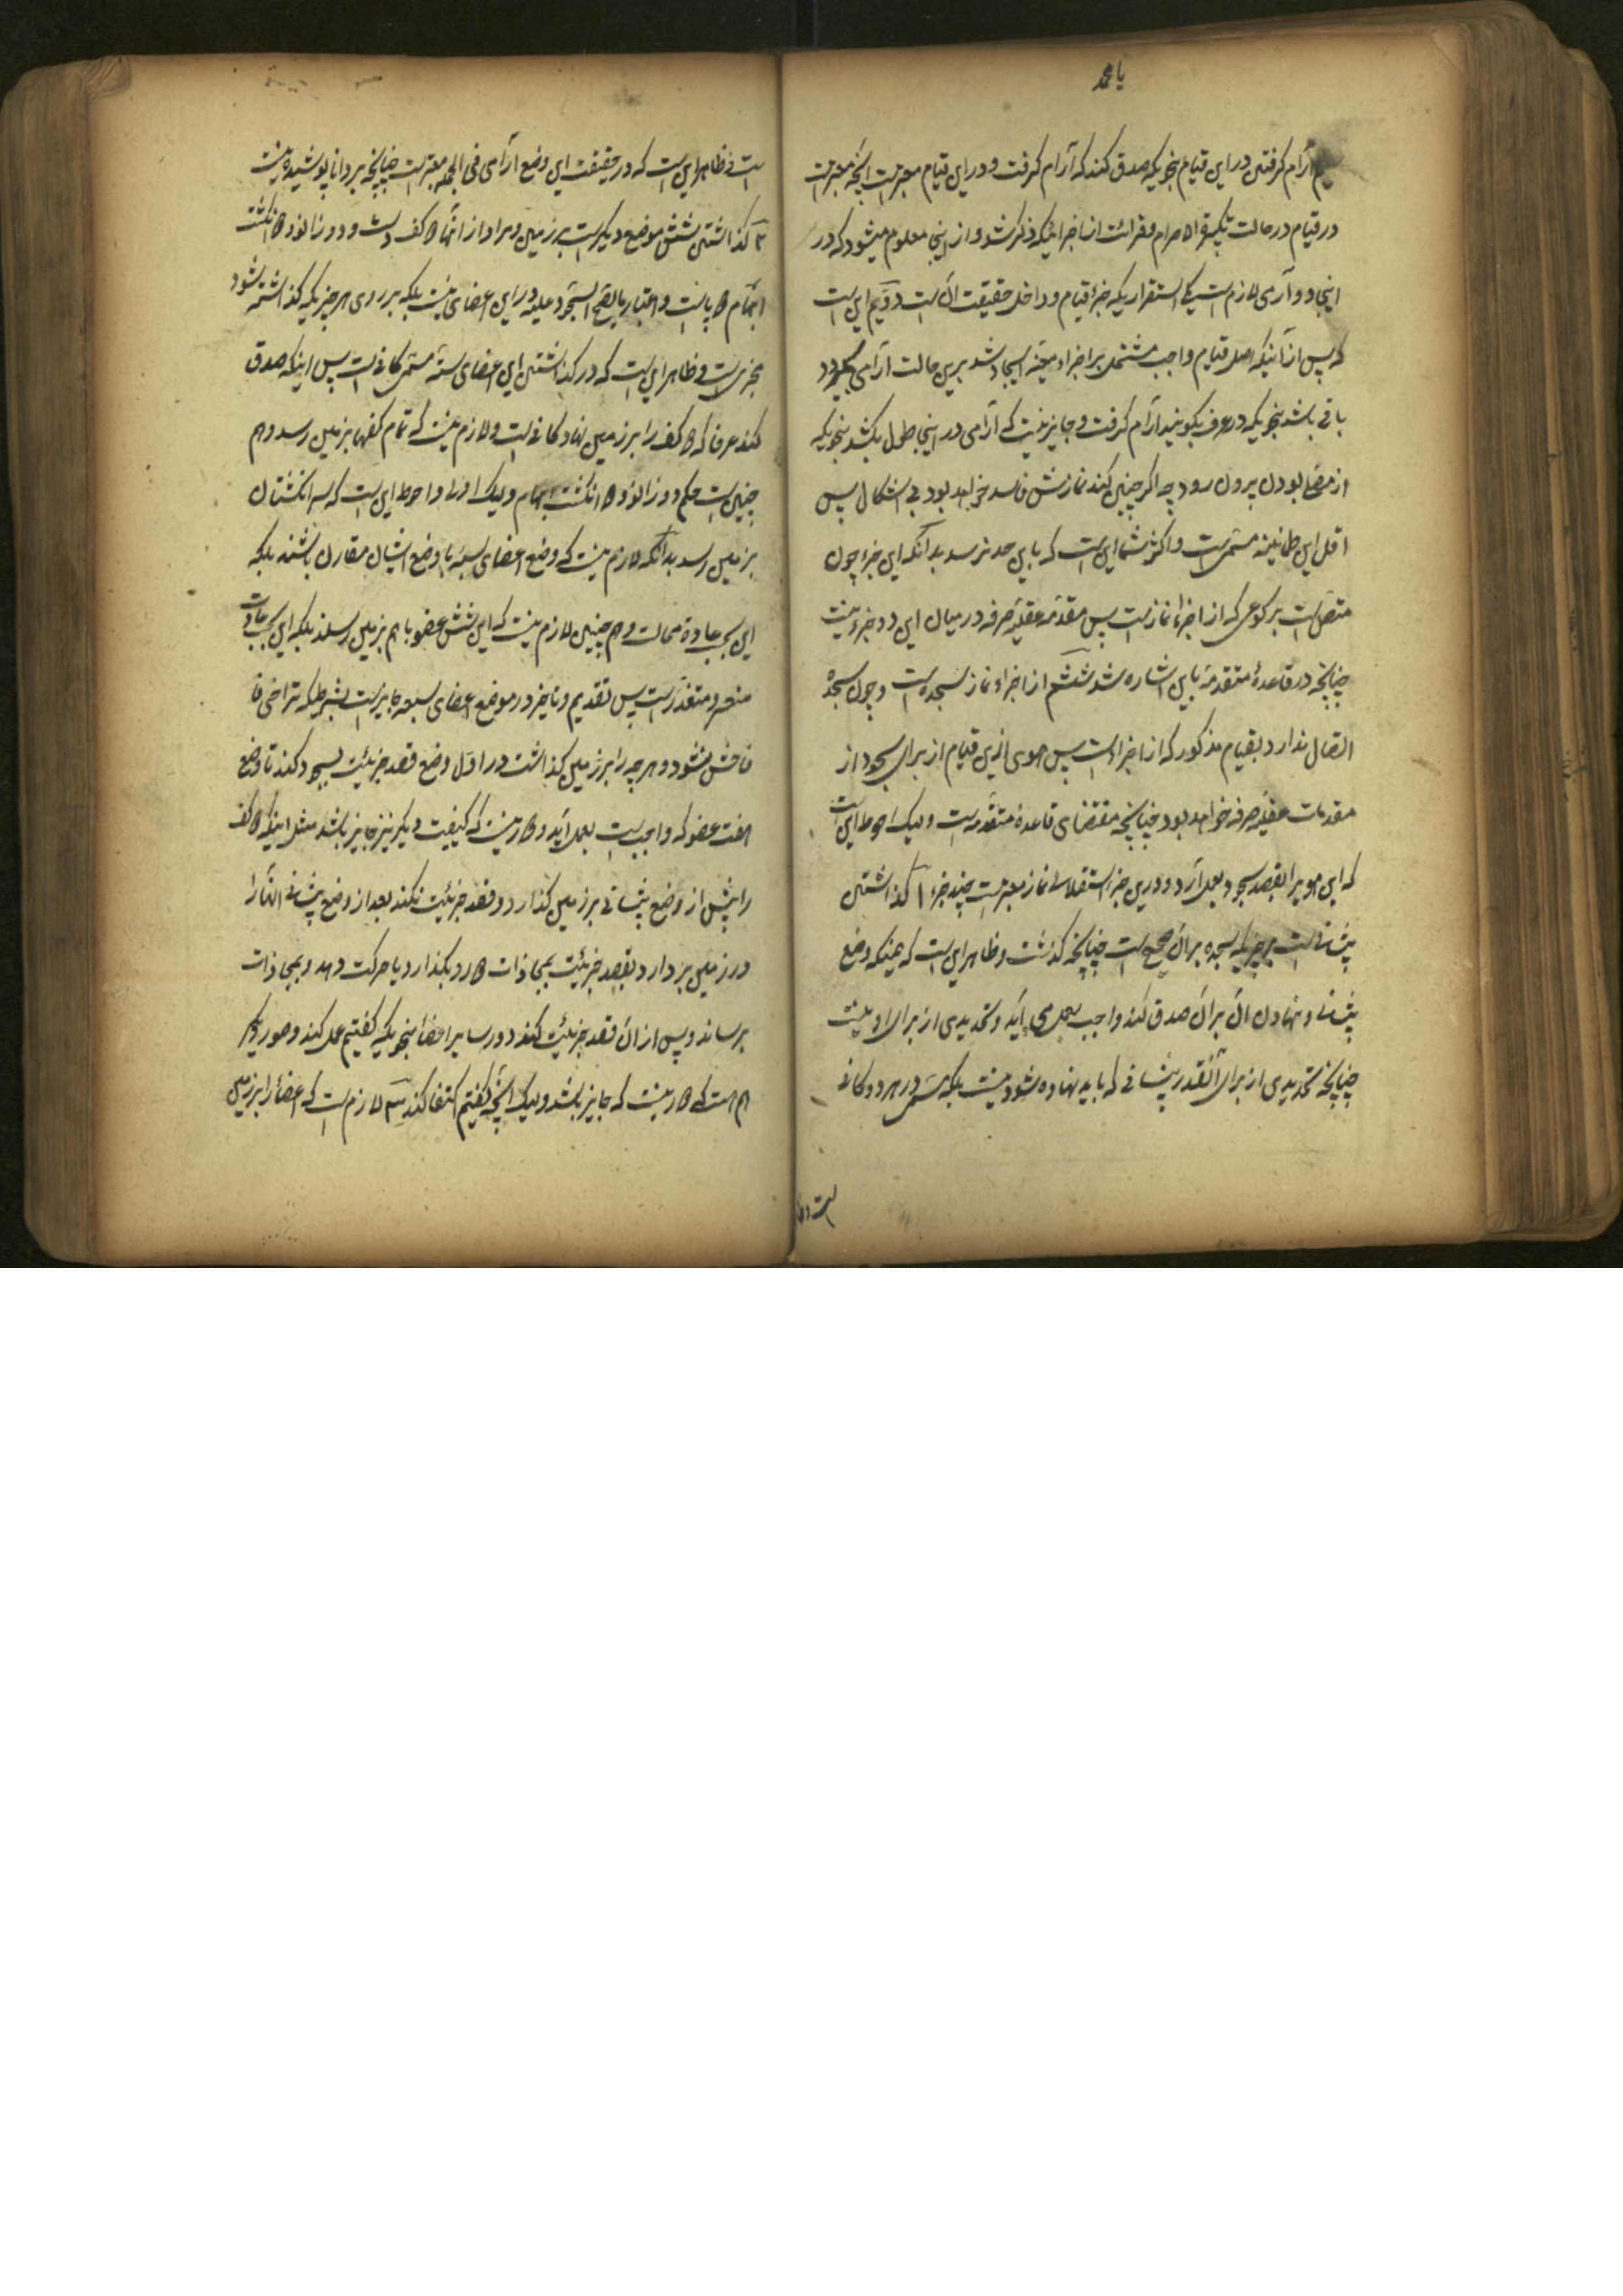 یا محمد
آرام گرفتن در این قیام بنحویکه صدق کند که آرام گرفت و در این قیام معتبرست آنچه معتبرست
در قیام در حالت تکبیرة الاحرام و قرائت از اجزائیکه ذکر شد و از اینجا معلوم میشود که در
اینجا دو آرامی لازم است یکی استقراریکه جزء قیام و داخل حقیقت آن است دویّم این است
که پس از آنیکه اصل قیام واجب مشتمل بر اجزاء معیّنه ایجاد شد برین حالت آرامی
باقی باشد بنحویکه در عرف بگویند آرام گرفت و جایز نیست که آرامی در اینجا طول بکشد بنحویکه
از مصلّی بودن برون رود چه اگر چنین کند نمازش فاسد خواهد بود بی اشکال پس
اقل این طمانینه مسمّی است و اکثرش تا این است که باین حد نرسد بدانکه این جزء چون
متصل است برکوعی که از اجزاء نماز است پس مقدمه عقلیّه صرفه در میان این دو جزء نیست
چنانچه در قاعدهٔ متقدمه باین اشاره شد ششم از اجزاء نماز سجده است و چون سجده
اتصال ندارد بقیام مذکور که از اجزاء است پس هوی ازین قیام از برای سجود از
مقدمات عقلیّه صرفه خواهد بود چنانچه مقتضای قاعدهٔ متقدمه است ولیک احوط این است
که این هویرا بقصد سجود بعمل آرد و درین جزء استقلالی نماز معتبرست چند جزء ۱ گذاشتن
پیشانی است بر چیزیکه سجده بر آن صحیح است چنانچه گذشت و ظاهر این است که همینکه وضع
پیشانی و نهادن آن بر آن صدق کند واجب بعمل می آید و تحدیدی از برای او نیست
چنانچه تحدیدی از برای آنقدر پیشانی که باید نهاده شود نیست بلکه مسمّی در هر دو کافی
است و
است و ظاهر این است که در حقیقت این وضع آرامی فی الجمله معتبرست چنانچه بر دانا پوشیده نیست
۲ گذاشتن شش موضع دیگرست بر زمین و مراد از آنها کف دست و دو زانو و انگشت
ابهام پاست و اعتبار ما یصحّ السجود علیه در این اعضای نیست بلکه بر روی هر چیزیکه گذاشته شود
مجزی است و ظاهر این است که در گذاشتن این اعضای ستّه مسمّی کافی است پس اینکه صدق
کند عرفا که کف را بر زمین نهاد کافی است و لازم نیست که تمام کفها بزمین رسد و هم
چنین است حکم دو زانو و انگشت ابهام ولیک اولی و احوط این است که سر انگشتان
بزمین رسد بدانکه لازم نیست که وضع اعضای سبعه با وضع ایشان مقارن باشند بلکه
این بحسب عادة محالست و هم چنین لازم نیست که این شش عضو با هم بزمین رسند بلکه این بحسب عادت
متعسر و متعذرست پس تقدیم و تاخیر در موضع اعضای سبعه جایزست بشرطیکه تراخی
فاحش نشود و هر چه را بر زمین گذاشت در اول وضع قصد جزئیت بسجود کند تا وضع
هفت عضو که واجب است بعمل آید و دور نیست که کیفیت دیگر نیز جایز باشد مثل اینکه کف
را پیش از وضع پیشانی بر زمین گذارد و قصد جزئیت نکند بعد از وضع پیشانی آنها را
در زمین بر دارد بقصد جزئیت بمحاذات رو بگذارد یا حرکت دهد و بمحاذات
برساند و پس از آن قصد جزئیت کند و در سایر اعضا بنحویکه گفتیم عمل کند و صور دیگر
هم هست که دور نیست که جایز باشد ولیک آنچه گفتیم اکتفا کند ۳ لازم است که اعضا را بر زمین